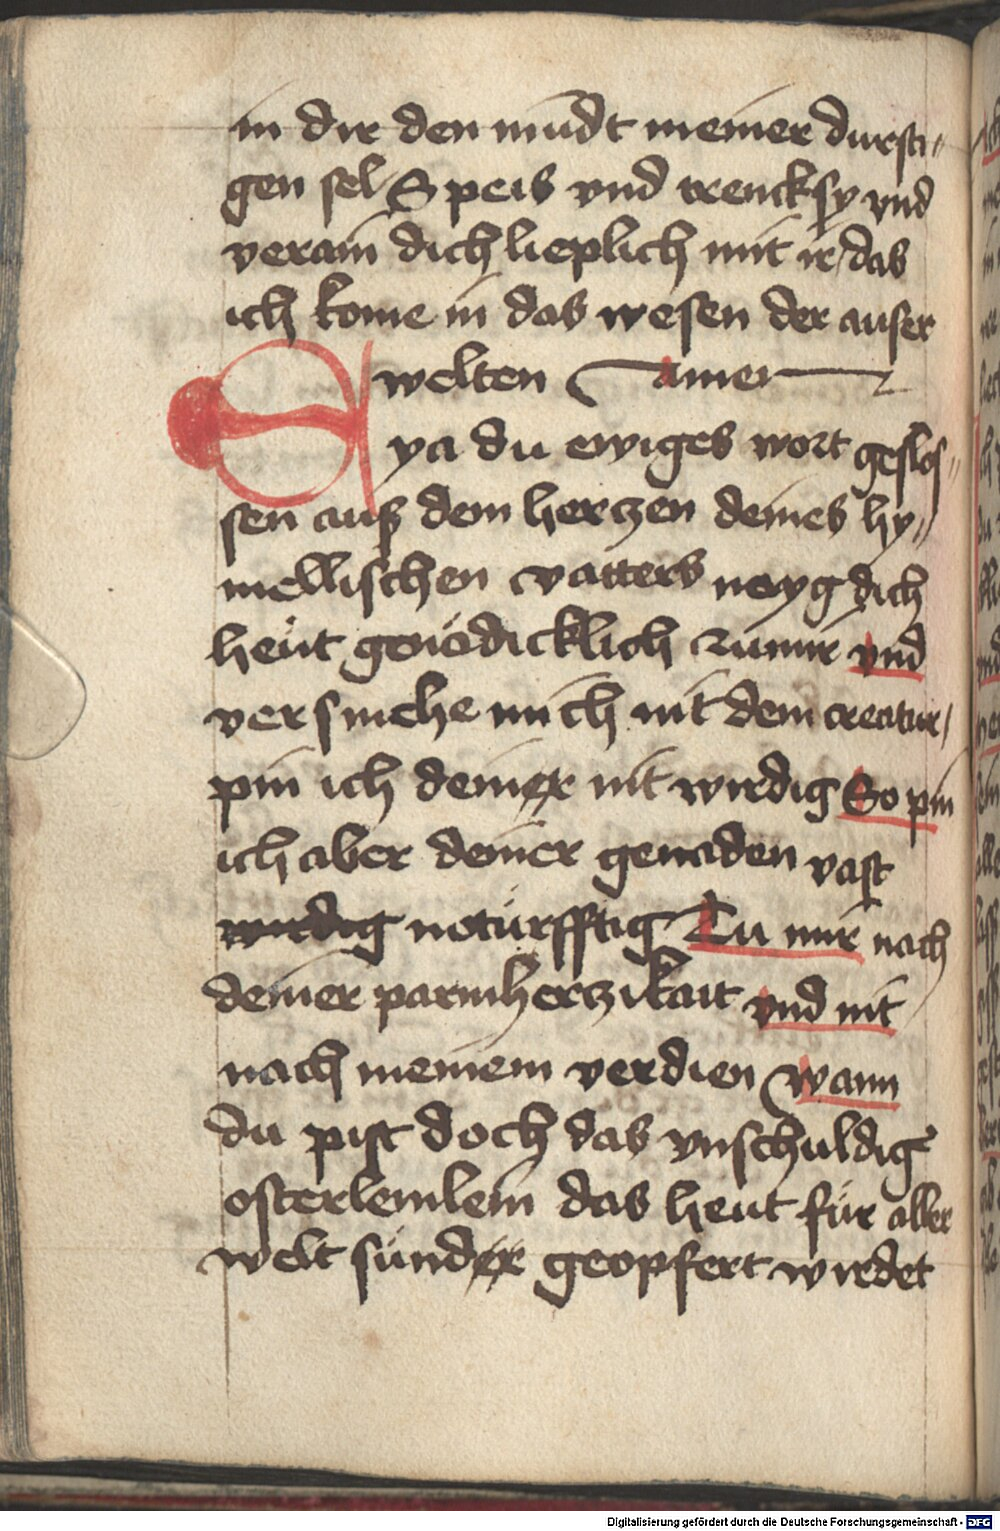 in dir den mu̇dt meiner dursti//
gen sel Speis vnd trencksy vnd
verain dich lieplich mit ir/das
ich kome in das wesen der auser
welten Amen
Eya du ewiges wort geslos//
sen auß dem hertzen deines hy//
mellischen vatters neyg dich
heüt genödicklich zu mir vnd
versmehe mich nit dein creatur/
pin ich deiner nit wirdig So pin
ich aber deiner genaden vast
wirdig notürfftig Tu mir nach
deiner parmhertzikait vnd nit
nach meinem verdien wann
du pist doch das vnschuldig
osterlemlein das heut für aller
welt sünder geopfert wirdet
Digitalisierung gefördert durch die Deutsche Forschungsgemeinschaft - DFG